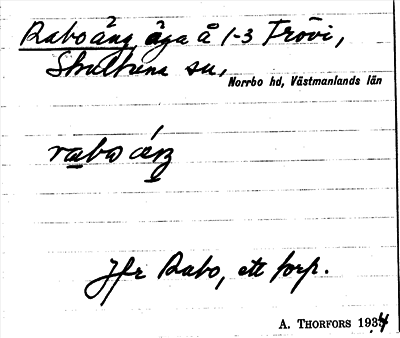 Raboäng, äga å 1-3 Trövi,
Skultuna sn,
Norrbo hd, Västmanlands län
rabo äŋ
Jfr Rabo, ett torp.
A. THORFORS 1934